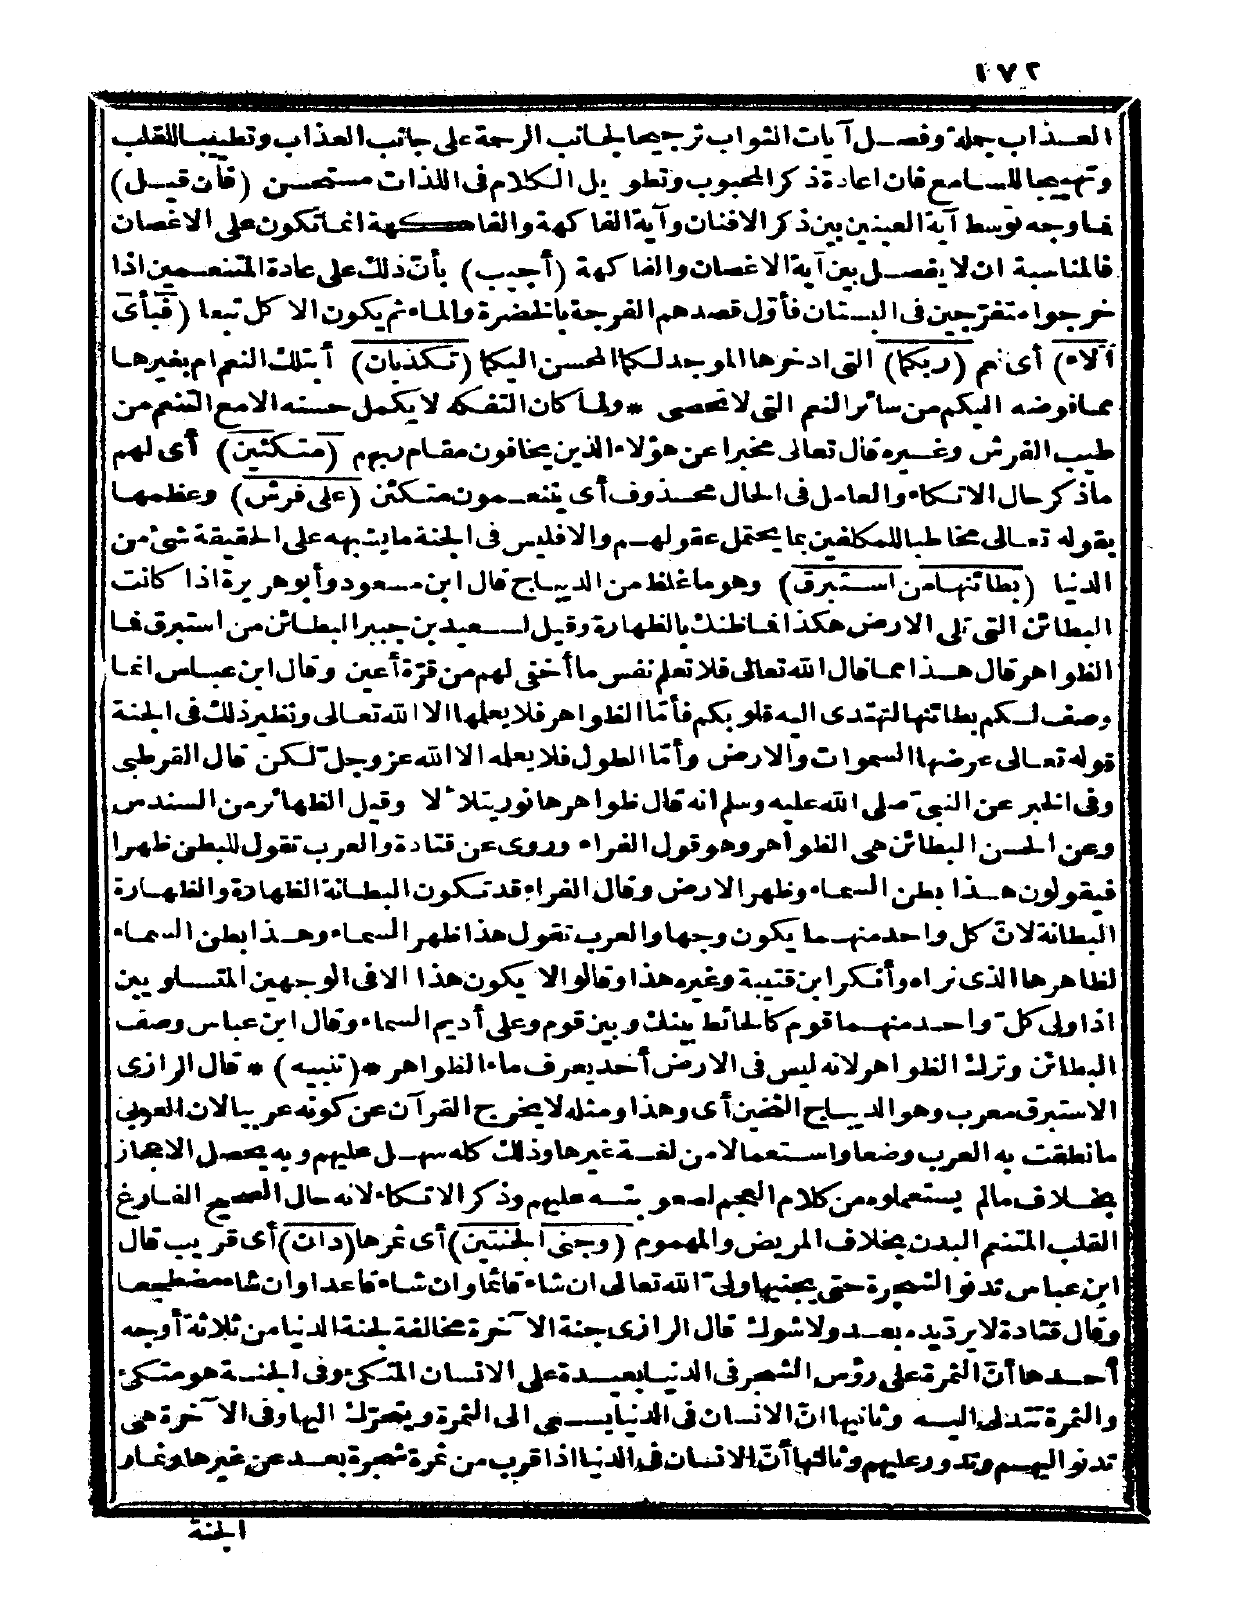 ١٧٢
العذاب جملة وفصل آيات الثواب ترجيحا لجانب الرحمة على جانب العذاب وتطييبا للقلب
وتهييجا للسامع فان اعادة ذكر المحبوب وتطويل الكلام فى اللذات مستحسن (فان قيل)
فما وجه توسط آية العينين بين ذكر الافنان وآية الفاكهة والفاكهة انما تكون على الاغصان
فالمناسبة ان لا يفصل بين آية الاغصان والفاكهة (أجيب) بأنّ ذلك على عادة المتنعمين اذا
خرجوا متفرّجين فى البستان فأوّل قصدهم الفرجة بالخضرة والماء ثم يكون الاكل تبعا (فبأى
آلاء) أى نم (ربكما) التى ادخرها الموجد لكما المحسن اليكما (تكذبان) أبتلك النعم ام بغيرها
مما فوضه اليكم من سائر النعم التى لا تحصى * ولما كان التفكه لا يكمل حسنه الا مع التنعم من
طيب الفرش وغيره قال تعالى مخبرا عن هؤلاء الذين يخافون مقام ربهم (متكئين) أى لهم
ماذكر حال الاتكاء والعامل فى الحال محذوف أى يتنعمون متكئن (على فرش) وعظمها
بقوله تعالى مخاطبا للمكلفين بما يحتمل عقولهم والا فليس فى الجنة ما يشبهه على الحقيقة شئ من
الدنيا (بطائنها من استبرق) وهو ما غلظ من الديباج قال ابن مسعود وأبو هريرة اذا كانت
البطائن التى تلى الارض هكذا فما ظنك بالظهارة وقيل لسعيد بن جبير البطائن من استبرق فما
الظواهر قال هذا مما قال الله تعالى فلا تعلم نفس ما أخفى لهم من قرّة أعين وقال ابن عباس انما
وصف لكم بطائنها لتهتدى اليه قلوبكم فأمّا الظواهر فلا يعلمها الا الله تعالى ونظير ذلك فى الجنة
قوله تعالى عرضها السموات والارض وأمّا الطول فلا يعلمه الا الله عز وجلّ لكن قال القرطبى
وفى الخبر عن النبىّ صلى الله عليه وسلم انه قال ظواهرها نور يتلاٴلا وقيل الظهائر من السندس
وعن الحسن البطائن هى الظواهر وهو قول الفراء وروى عن قتادة والعرب تقول للبطن ظهرا
فيقولون هذا بطن السماء وظهر الارض وقال الفراء قد تكون البطانة الظهارة والظهارة
البطانة لانّ كل واحد منهما يكون وجها والعرب تقول هذا ظهر السماء وهذا بطن السماء
لظاهرها الذى نراه وأنكر ابن قتيبة وغيره هذا وقالوا لا يكون هذا الا فى الوجهين المتساويين
اذا ولى كلّ واحد منهما قوم كالحائط بينك وبين قوم وعلى أديم السماء وقال ابن عباس وصف
البطائن وترك الظواهر لانه ليس فى الارض أحد يعرف ما الظواهر * (تنبيه) * قال الرازى
الاستبرق معرب وهو الديباج الثخين أى وهذا ومثله لا يخرج القرآن عن كونه عربيا لان العربىّ
ما نطقت به العرب وضعا واستعمالا من لغة غيرها وذلك كله سهل عليهم وبه يحصل الاعجاز
بخلاف ما لم يستعملوه من كلام العجم لصعوبته عليهم وذكر الاتكاء لانه حال الصحيح الفارغ
القلب المتنعم البدن بخلاف المريض والمهموم (وجنى الجنتين) أى ثمرها (دان) أى قريب قال
ابن عباس تدنو الشجرة حتى يجنيها ولىّ الله تعالى ان شاء قائما وان شاء قاعدا وان شاء مضطجعا
وقال قتادة لا يرد يده بعد ولا شوك قال الرازى جنة الآخرة مخالفة لجنة الدنيا من ثلاثة أوجه
أحدها أنّ الثمرة على رؤس الشجر فى الدنيا بعيدة على الانسان المتكئ وفى الجنة هو متكئ
والثمرة تتدلى اليه وثانيها انّ الانسان فى الدنيا يسعى الى الثمرة ويتحرّك اليها وفى الآخرة هى
تدنو اليهم وتدور عليهم وثالثها أنّ الانسان فى الدنيا اذا قرب من ثمرة شجرة بعد عن غيرها وثمار
الجنة